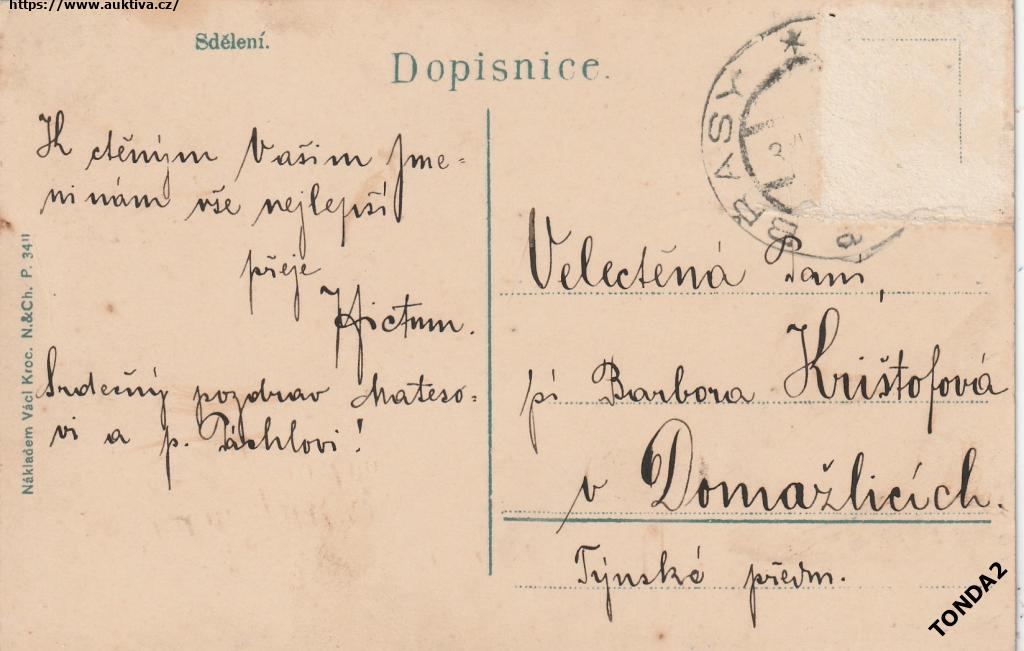 https://www.auktiva.cz/
Sdělení.
Dopisnice.
K ctěným Vašim Jme-
ninám vše nejlepší
přeje
Srdečný pozdrav Mateso-
vi a p. Páchlovi!
Nákladem Václ Kroc. N.&Ch. P. 34"
BŘASY
Velectěná Paní,
pí Barbora Krištofová
v Domažlicích.
Týnské předm.
TONDA2